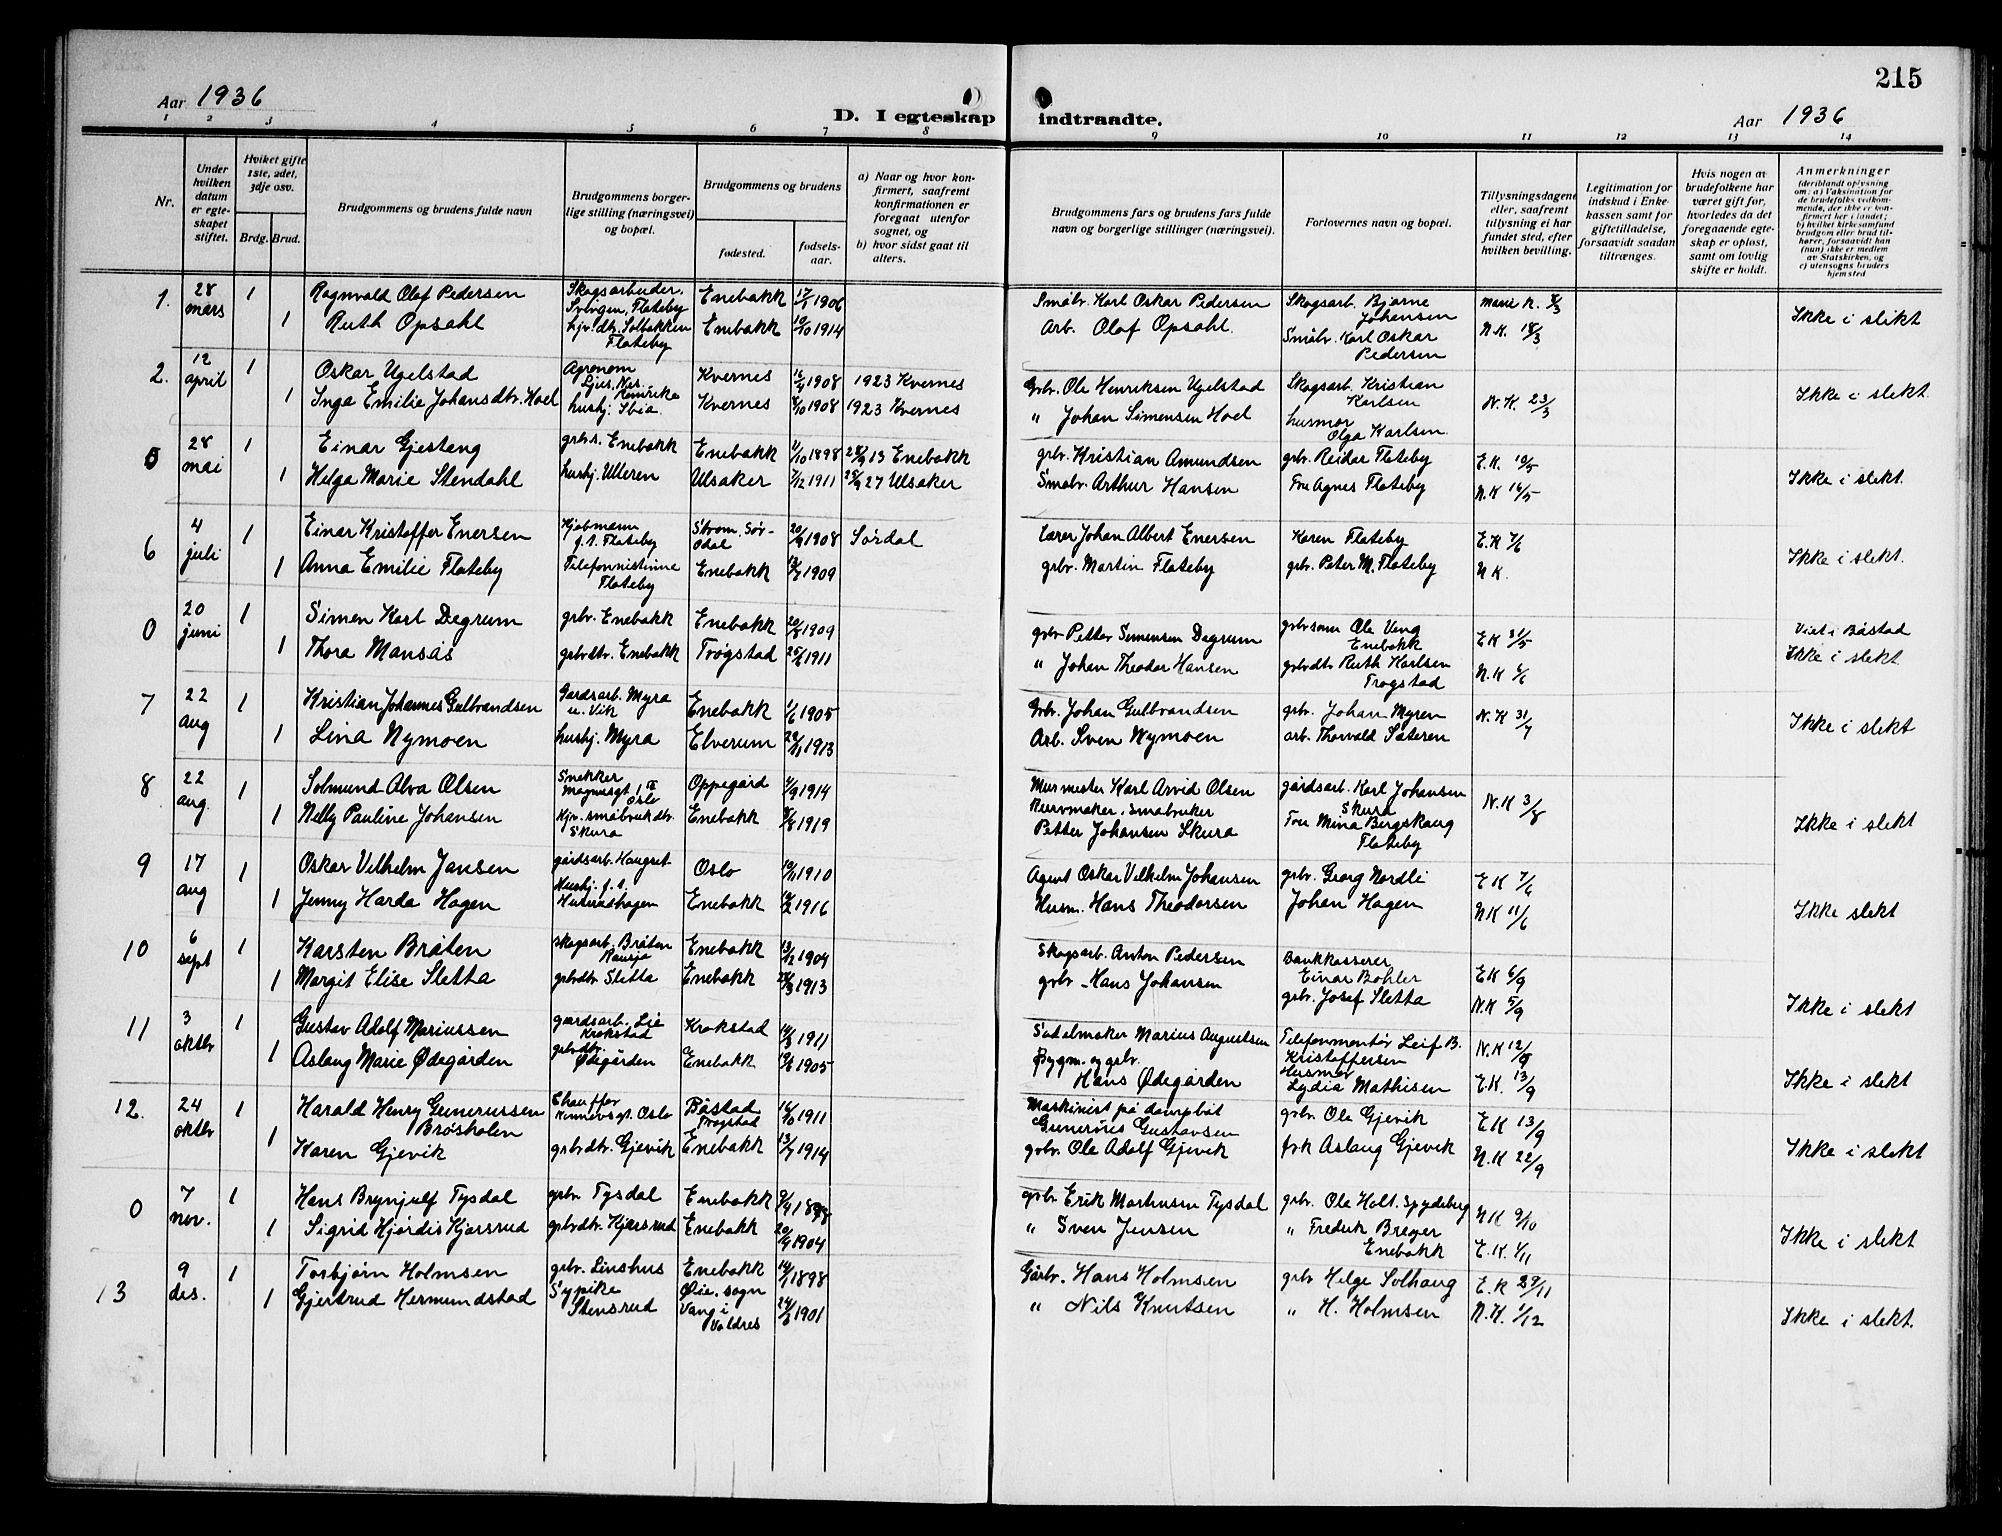 215
Aar 1936
D. I egteskap indtraadte.
Aar 1936
1 2 3 4 5 6 7 8 9 10 11 12 13 14
Nr.
Under hvilken datum er egteskapet stiftet.
Hvilket gifte 1ste, 2det, 3dje osv.
Brdg. Brud.
Brudgommens og brudens fulde navn
Brudgommens borgerlige stilling (næringsvei) og bopæl.
Brudgommens og brudens
fødested.
fødselsaar.
a) Naar og hvor konfirmert, saafremt konfirmationen er foregaat utenfor sognet, og
b) hvor sidst gaat til alters.
Brudgommens fars og brudens fars fulde navn og borgerlige stillinger (næringsvei).
Forlovernes navn og bopæl.
Tillysningsdagene eller, saafremt tillysning ei har fundet sted, efter hvilken bevilling.
Legitimation for indskud i Enkekassen samt for giftetilladelse, forsaavidt saadan tiltrænges.
Hvis nogen av brudefolkene har været gift før, hvorledes da det foregaaende egteskap er opløst, samt om lovlig skifte er holdt.
Anmerkninger
(deriblandt oplysning om: a) Vaksination for de brudefolks vedkommende, der ikke er konfirmert her i landet; b) hvilket kirkesamfund brudgom eller brud tilhører, forsaavidt han (hun) ikke er medlem av Statskirken, og c) utensogns bruders hjemsted
1. 28 mars 1 Ragnvald Olaf Pedersen Skogsarbeider, Flateby Enebakk 17/1 1906 Småbr. Karl Oskar Pedersen Skogsarb. Bjarne Johansen
1 Ruth Opsahl hjv. dtr. Solbakken Flateby Enebakk 10/10 1914 Arb. Olaf Opsahl. Småbr. Karl Oskar Pedersen N.K. 18/3 Ikke i slekt
2. 12 april 1 Oskar Ugelstad Agronom Kvernes 16/9 1908 1923 Kvernes Grbr. Ole Henriksen Ugelstad Skogsarb. Kristian Karlsen
1 Inga Emilie Johansdtr. Hoel hushj. Ibia Kvernes 8/10 1908 1923 Kvernes " Johan Simensen Hoel husmor Olga Karlsen N.K. 23/3 Ikke i slekt.
5 28 mai 1 Einar Gjesteng grbr.s. Enebakk Enebakk 1/10 1898 28/9 13 Enebakk grbr. Kristian Amundsen grbr. Reidar Flateby E.K. 10/5
1 Helga Marie Stendahl hushj. Ulleren Ulsaker 7/12 1911 25/9 27 Ulsaker Småbr. Arthur Hansen Fru Agnes Flateby N.K 16/5 Ikke i slekt.
6 4 juli 1 Einar Kristoffer Enersen Kjøbmann f.t. Flateby Strøm, Sør-Odal 20/9 1908 Sørdal Lærer Johan Albert Enersen Karen Flateby E.K 7/6
1 Anna Emilie Flateby Telefonnistinne Flateby Enebakk 1909 grbr. Martin Flateby grbr. Peter M. Flateby N K. Ikke i slekt.
0 20 juni 1 Simen Karl Degrum grbr. Enebakk Enebakk 20/8 1909 grbr Petter Simensen Degrum grbrsønn Ole Veng Enebakk E K 31/5 Viet i Båstad
1 Thora Mansås grbrdtr. Enebakk Trøgstad 25/2 1911 " Johan Theodor Hansen grbrdtr Ruth Karlsen Trøgstad N.K 6/6 Ikke i slekt
7 22 aug 1 Kristian Johannes Gulbrandsen Gardsarb. Myra u. Vik Enebakk 1/6 1905 Grbr. Johan Gulbrandsen grbr. Johan Myren N.K 31/7
1 Lina Nymoen hushj. Myra Elverum 1913 Arb. Sven Nymoen arb. Thorvald Sæteren Ikke i slekt
8 22 aug. 1 Solmund Alva Olsen Snekker Magnusgt 1 Oslo Oppegård 4/9 1914 Murmester Karl Arvid Olsen gårdsarb. Karl Johansen Skura N.K 3/8
1 Nelly Pauline Johansen Hjv. småbrukdtr. Skura Enebakk 8/8 1919 Kurvmaker, småbruker Petter Johansen Skura Fru Mina Bergskaug Flateby Ikke i slekt
9 17 aug 1 Oskar Vilhelm Jansen gårdsarb. Haugset Oslo 19/11 1910 Agent Oskar Vilhelm Johansen grbr. Georg Nordli E K 7/6
1 Jenny Harda Hagen Hushj. f.t. Enebakk 1916 Husm. Hans Theodorsen Johan Hagen N K 11/6 Ikke slekt
10 6 sept 1 Karsten Bråten skogsarb. Bråten Rausjø Enebakk 13/12 1904 Skogsarb. Anton Pedersen Bankkasserer Einar Bøhler E K 6/9
1 Margit Elise Sletta grbrdtr Sletta Enebakk 28/3 1913 grbr Hans Johansen grbr. Josef Sletta N.K 5/9 Ikke i slekt
11 3 oktbr 1 Gustav Adolf Mariussen gardsarb. Lie Krokstad Krokstad 14/3 1911 Sadelmaker Marius Augustsen Telefonmontør Leif B. Kristoffersen N.K 12/9
1 Aslaug Marie Ødegården grbrdtr. Ødegården Enebakk 1905 Bygm. og grbr. Hans Ødegården Husmor Lydia Mathisen E.K. 13/9 Ikke i slekt
12. 24 oktbr 1 Harald Henry Gunerussen Brøsholen Chauffør Oslo Båstad Trøgstad 14/10 1911 Maskinist på dampbåt Gunerius Gustavsen grbr. Ole Gjevik E K 13/9
1 Karen Gjevik grbrdtr. Gjevik Enebakk 13/7 1914 grbr. Ole Adolf Gjevik frk Aslaug Gjevik N.K 22/9 Ikke i slekt
0 7 nov. 1 Hans Brynjulf Tysdal grbr Tysdal Enebakk 9/4 1898 grbr Erik Martinsen Tysdal grbr. Ole Holt. Spydeberg N K 9/10
1 Sigrid Hjørdis Kjørsrud grbrdtr Kjørsrud Enebakk 20/9 1904 " Sven Jensen " Frederik Breyer Enebakk E.K. 1/11 Ikke i slekt
13 9 des. 1 Torbjørn Holmsen grbr. Linshus Enebakk 14/1 1898 Gårbr. Hans Holmsen grbr Helge Solhaug E.K 29/11
1 Gjertrud Hermundstad Sypike Stensrud Øie sogn Vang i Valdres 1901 " Nils Knutsen " H. Holmsen N.K. 1/12 Ikke i slekt.